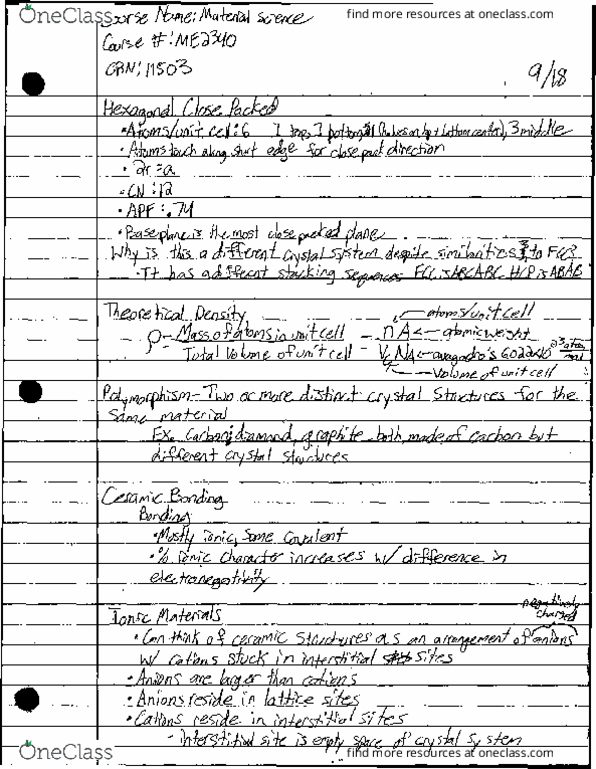 OneClass
find more resources at oneclass.com
Course Name: Material Science
Course #: ME2340
CRN: 11503
9/18
Hexagonal Close Packed
• Atoms/unit cell: 6 1 top, 1 bottom, 3 middle
• Atoms touch along short edge for close pack direction
• 2r = a
• CN: 12
• APF: .74
• Baseplane is the most close packed plane
Why is this a different crystal system despite similarities to FCC?
• It has a different stacking sequences FCC is ABCABC HCP is ABAB
atoms/unit cell
Theoretical Density
ρ - Mass of atoms in unit cell - nA ← atomic weight
Total Volume of unit cell - VcNA ← avagadro's 6.022x10^23 atoms/mol
Volume of unit cell
Polymorphism - Two or more distinct crystal structures for the
same material
Ex. Carbon; diamond, graphite both made of carbon but
different crystal structures
Ceramic Bonding
Bonding
• Mostly ionic, some covalent
• % ionic character increases w/ difference in
electronegativity
negatively
charged
Ionic Materials
• Can think of ceramic structures as an arrangement of anions
w/ cations stuck in interstitial sites
• Anions are larger than cations
• Anions reside in lattice sites
• Cations reside in interstitial sites
- interstitial site is empty space of crystal system
OneClass
find more resources at oneclass.com